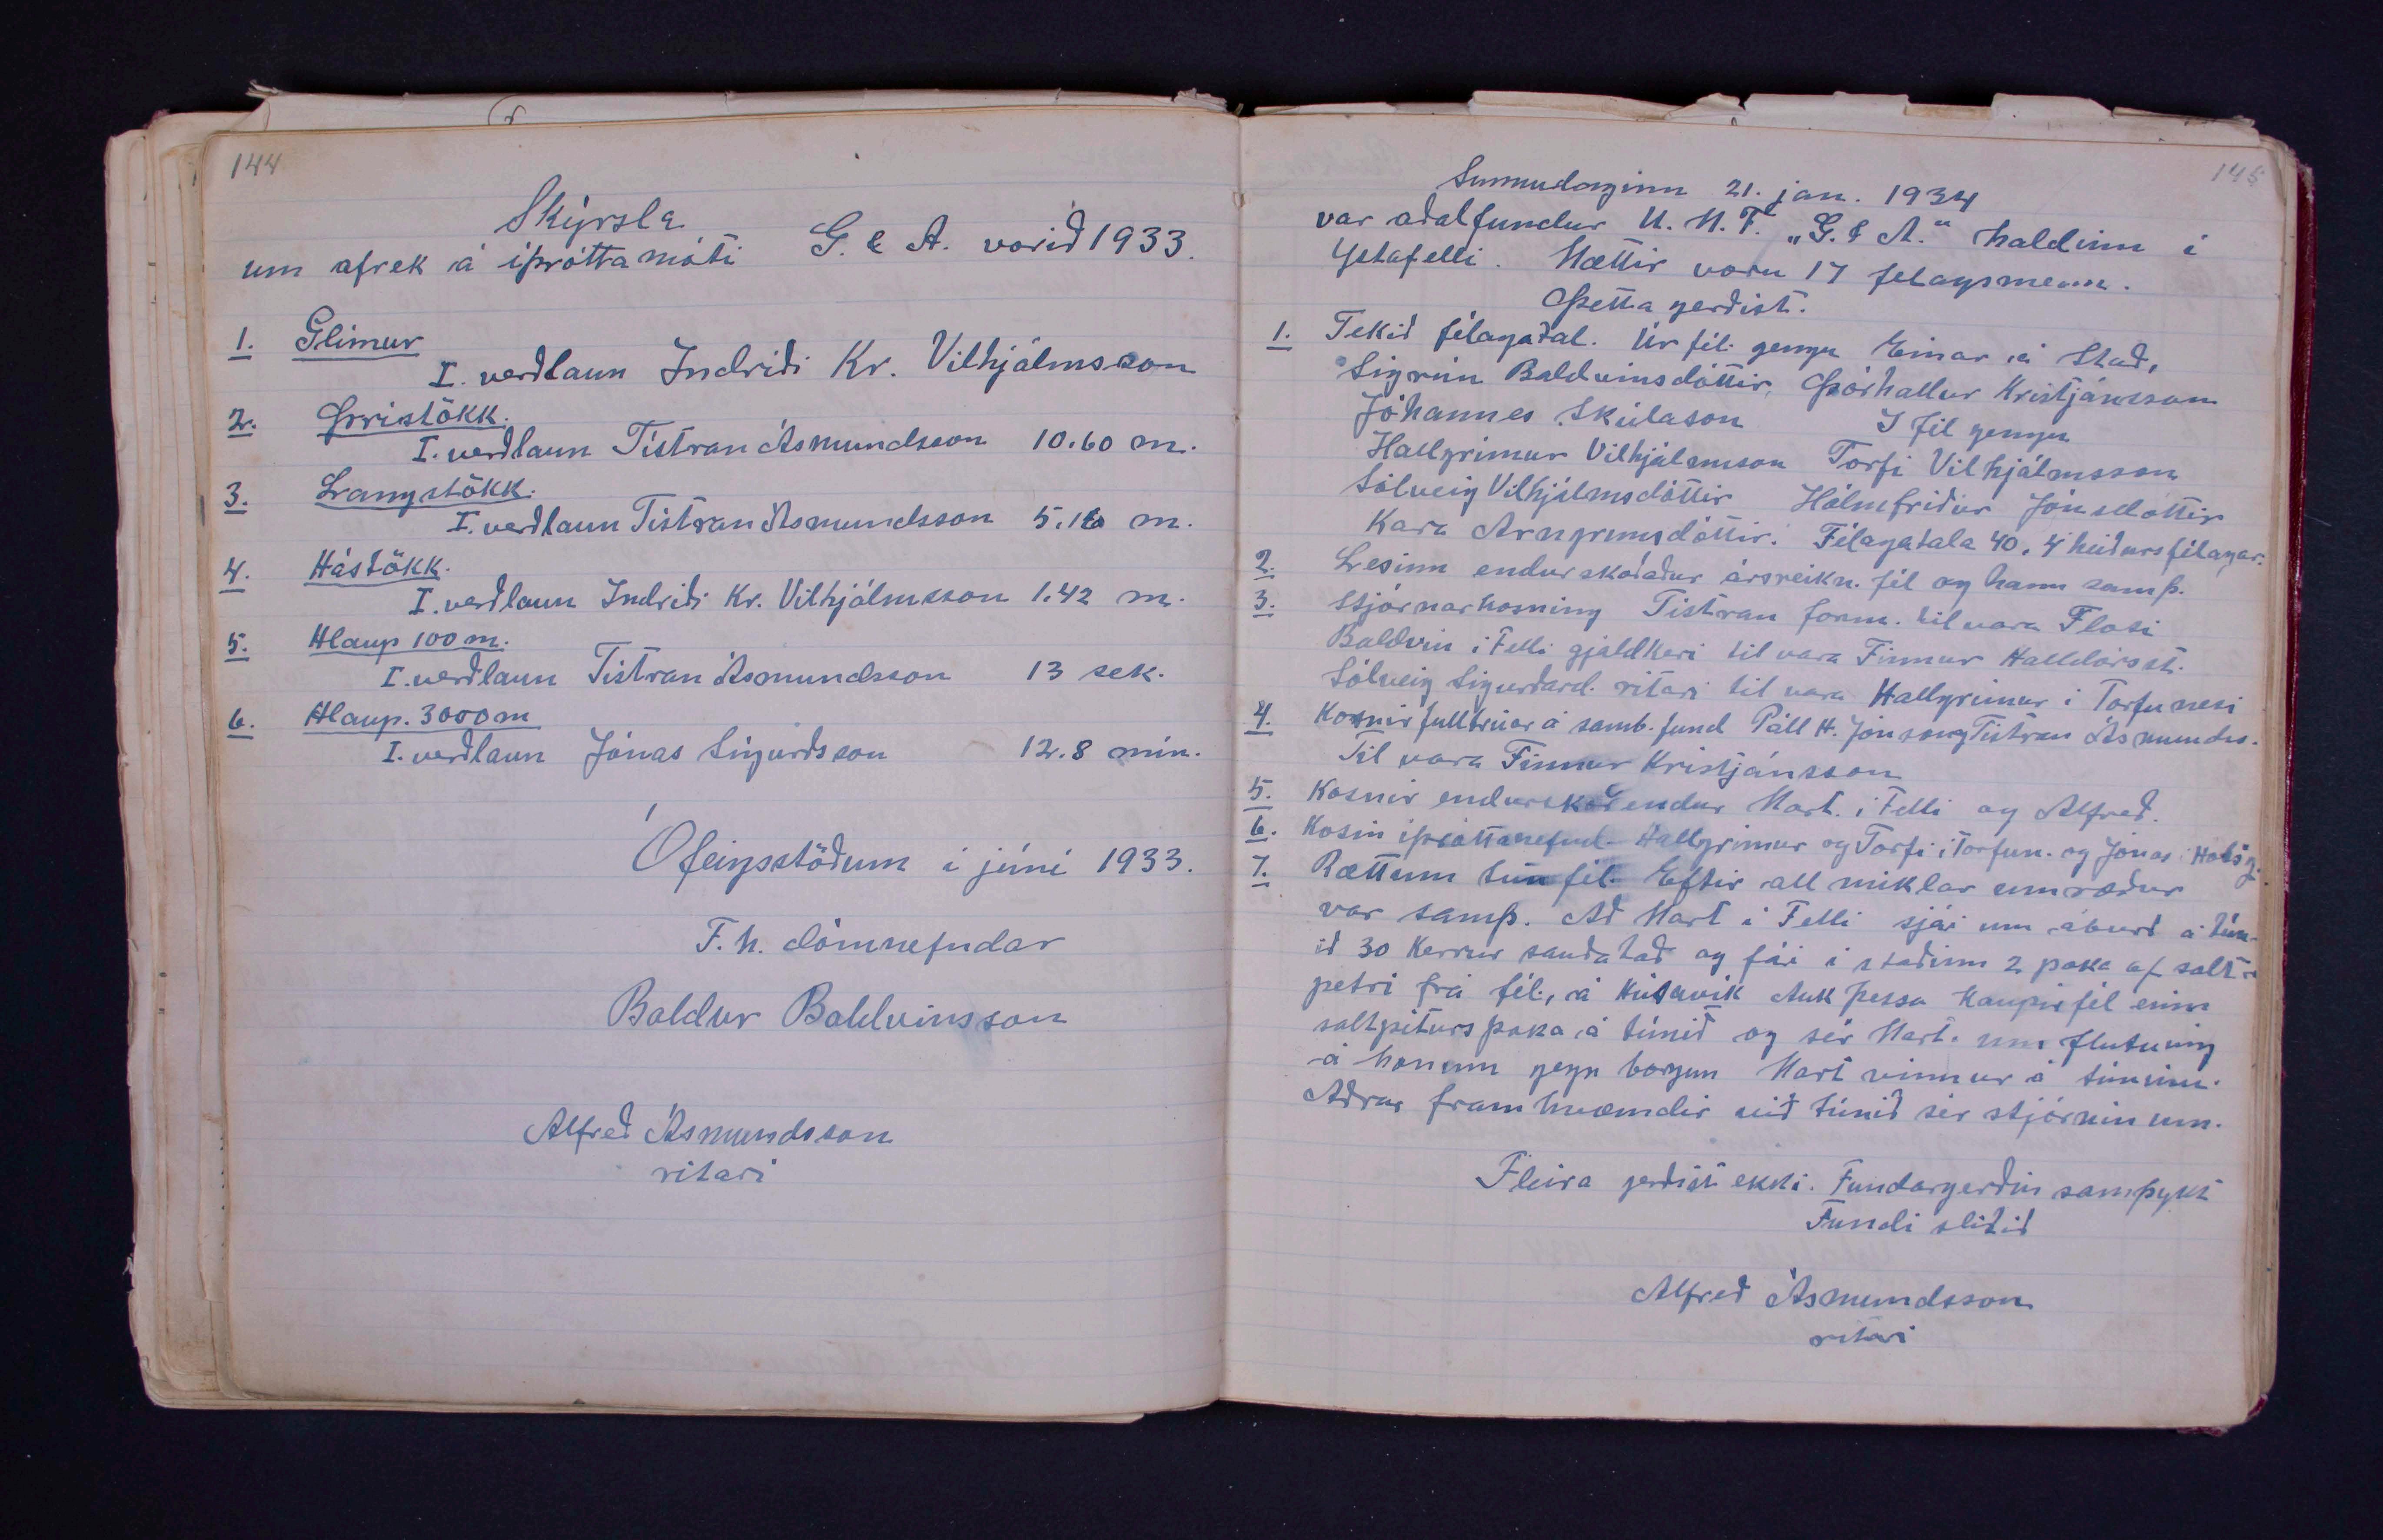 144
Skýrsla
um afrek á íþróttamóti G. & A. vorið 1933.
1. Glímur
I. verðlaun Indriði Kr. Vilhjálmsson
2. Þrístökk.
I. verðlaun Tistran Ásmundsson 10.60 m.
3. Langstökk.
I. verðlaun Tistran Ásmundsson 5.10 m.
4. Hástökk.
I. verðlaun Indriði Kr. Vilhjálmsson 1.42 m.
5. Hlaup 100 m.
I. verðlaun Tistran Ásmundsson 13 sek.
6. Hlaup. 3000 m
I. verðlaun Jónas Sigurðsson 12.8 mín.
Ófeigsstöðum í júní 1933.
F. h. dómnefndar
Baldur Baldvinsson
Alfreð Ásmundsson
ritari
145
Sunnudaginn 21. jan. 1934
var aðalfundur U. M. F. „G. & A." haldinn í
Ystafelli. Mættir voru 17 félagsmenn.
Þetta gerðist.
1. Tekið félagatal. Úr fél. gengu Einar á Stað,
Sigrún Baldvinsdóttir, Þórhallur Kristjánsson
Jóhannes Skúlason Í fél gengu
Hallgrímur Vilhjálmsson Torfi Vilhjálmsson
Sólveig Vilhjálmsdóttir Hólmfríður Jónsdóttir
Kara Arngrímsdóttir. Félagatala 40. 4 heiðursfélagar.
2. Lesinn endurskoðaður ársreikn. fél og hann samþ.
3. Stjórnarkosning Tistran form. til vara Flosi
Baldvin í Felli gjaldkeri til vara Finnur Halldórsst.
Sólveig Sigurðard. ritari til vara Hallgrímur í Torfunesi
4. Kosnir fulltrúar á samb. fund Páll H. Jónsson og Tistran Ásmunds.
Til vara Finnur Kristjánsson
5. Kosnir endurskoðendur Mart. í Felli og Alfreð.
6. Kosin íþróttanefnd Hallgrímur og Torfi í Torfun. og Jónas í
7. Rætt um tún fél. Eftir all miklar umræður
var samþ. Að Mart í Felli sjái um áburð á tún-
ið 30 kerrur sauðatað og fái í staðinn 2 poka af salt-
petri frá fél., á Húsavík Auk þessa kaupir fél einn
saltpéturspoka á túnið og sér Mart. um flutning
á honum gegn borgun Mart vinnur á túninu.
Aðrar framkvæmdir við túnið sér stjórnin um.
Fleira gerðist ekki. Fundargerðin samþykt
Fundi slitið
Alfreð Ásmundsson
ritari